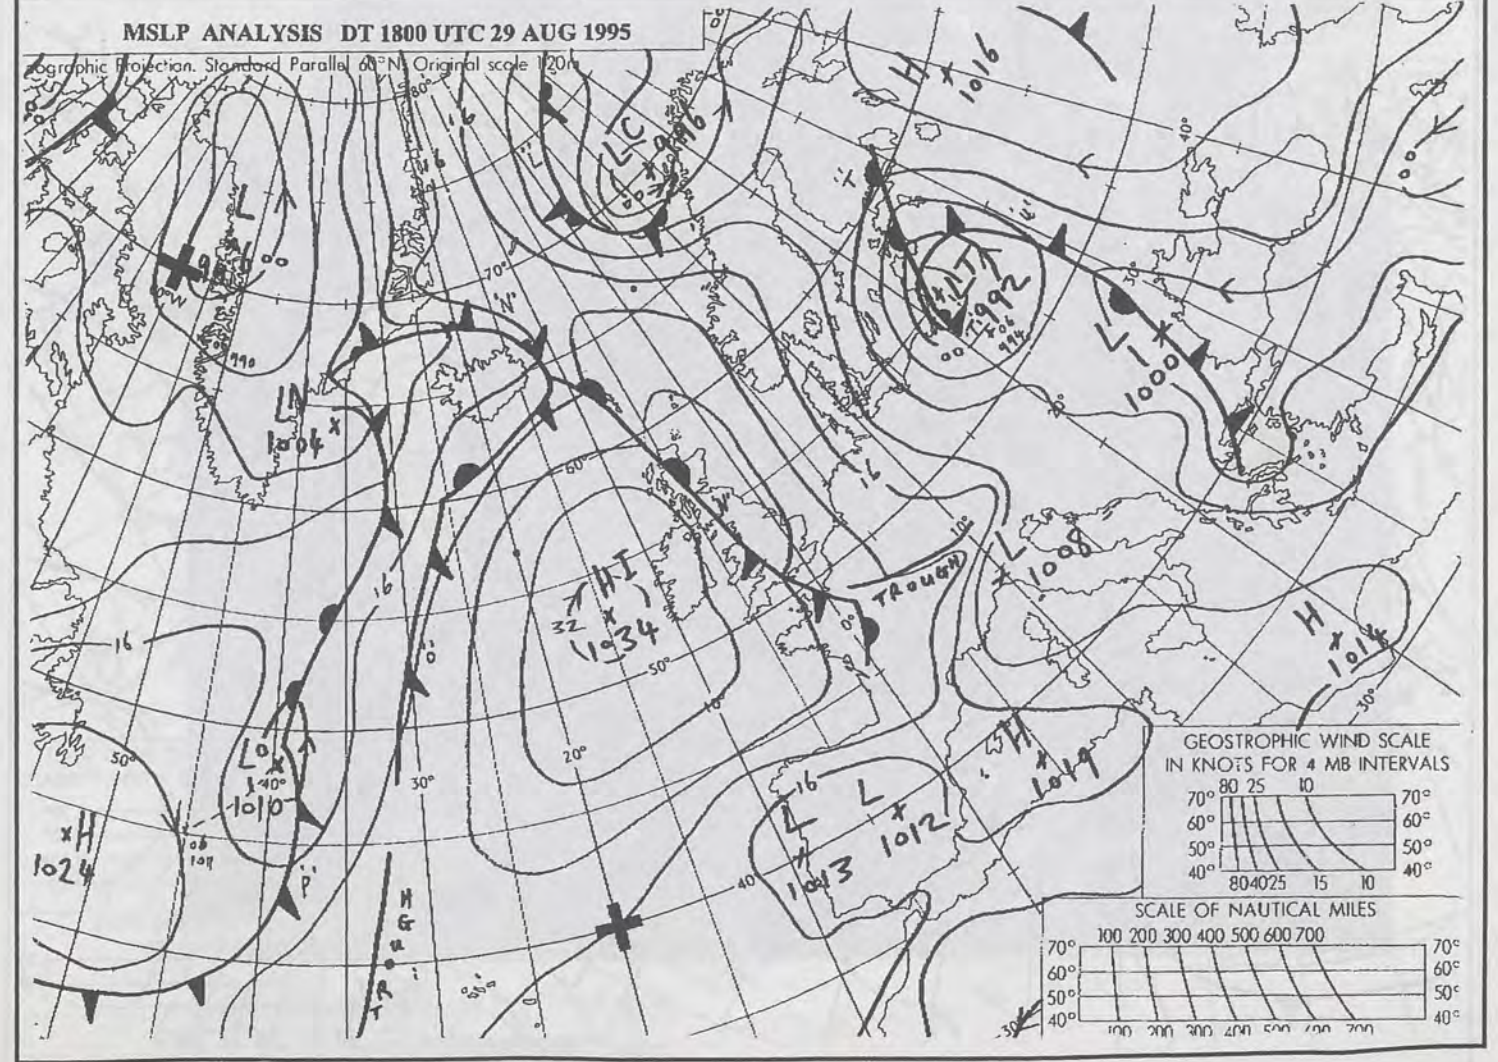 MSLP ANALYSIS DT 1800 UTC 29 AUG 1995
ographic Projection. Standard Parallel 60°N. Original scale 1:20m
H
x
1016
80°
16
16
LC
996
x
40°
L
00
990
70°
'N'
LT
992
x 06
994
30°
L
x
1000
20°
LN
1004 x
60°
16
10°
TROUGH
L
x
1008
HI
32 x
1034
16
16
50°
10°
0°
H
x
1014
30°
50°
L
x
40°
1010
30°
20°
'P'
06
1011
x H
1024
TROUGH
16
L
x
1012
L
x
1013
40°
H
x
1019
30°
GEOSTROPHIC WIND SCALE
IN KNOTS FOR 4 MB INTERVALS
80 25 10
70° 70°
60° 60°
50° 50°
40° 40°
80 40 25 15 10
SCALE OF NAUTICAL MILES
100 200 300 400 500 600 700
70° 70°
60° 60°
50° 50°
40° 40°
100 200 300 400 500 600 700